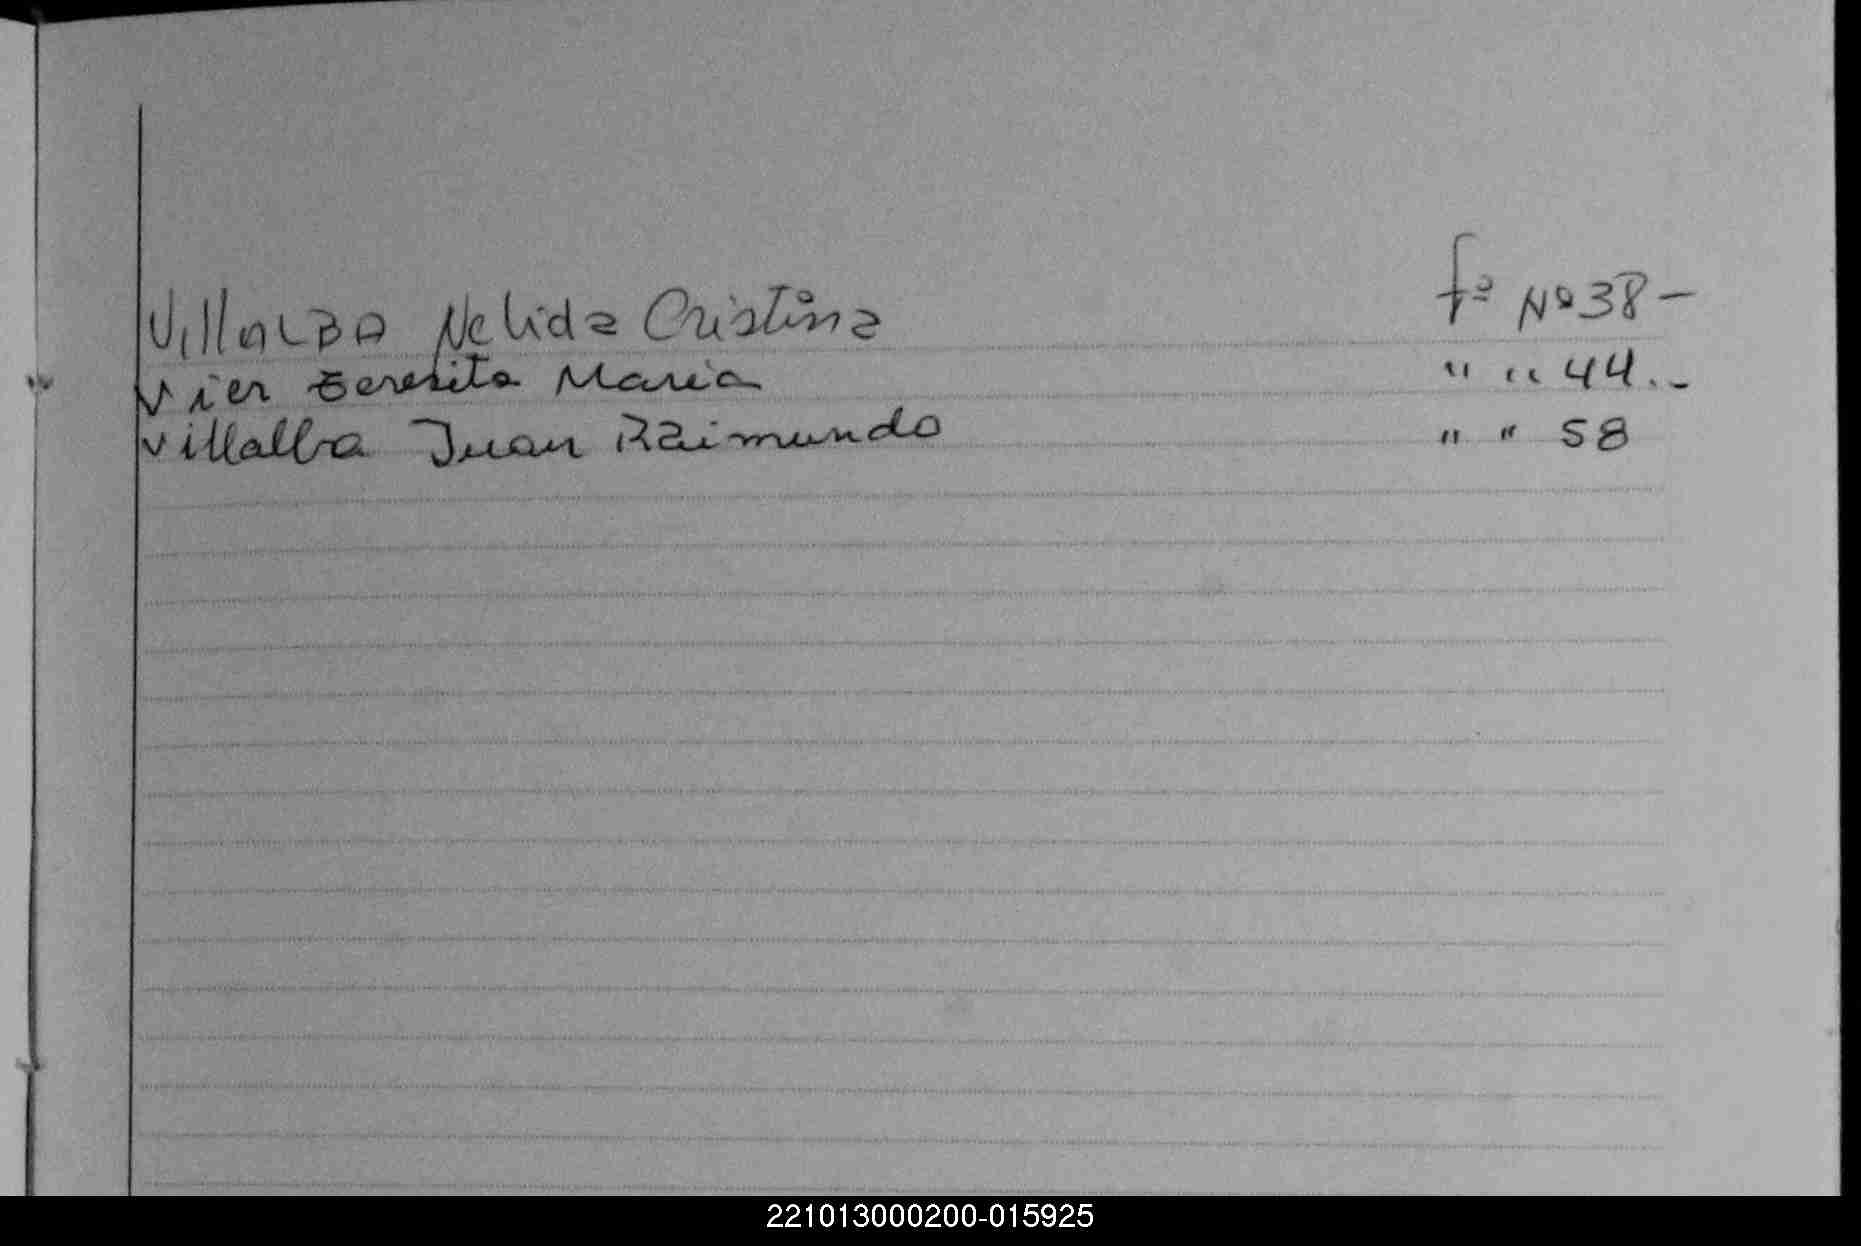 VillALBA Nelida Cristina fº Nº 38 -
Vier Teresita Maria " " 44.-
Villalba Juan Raimundo " " 58
221013000200-015925